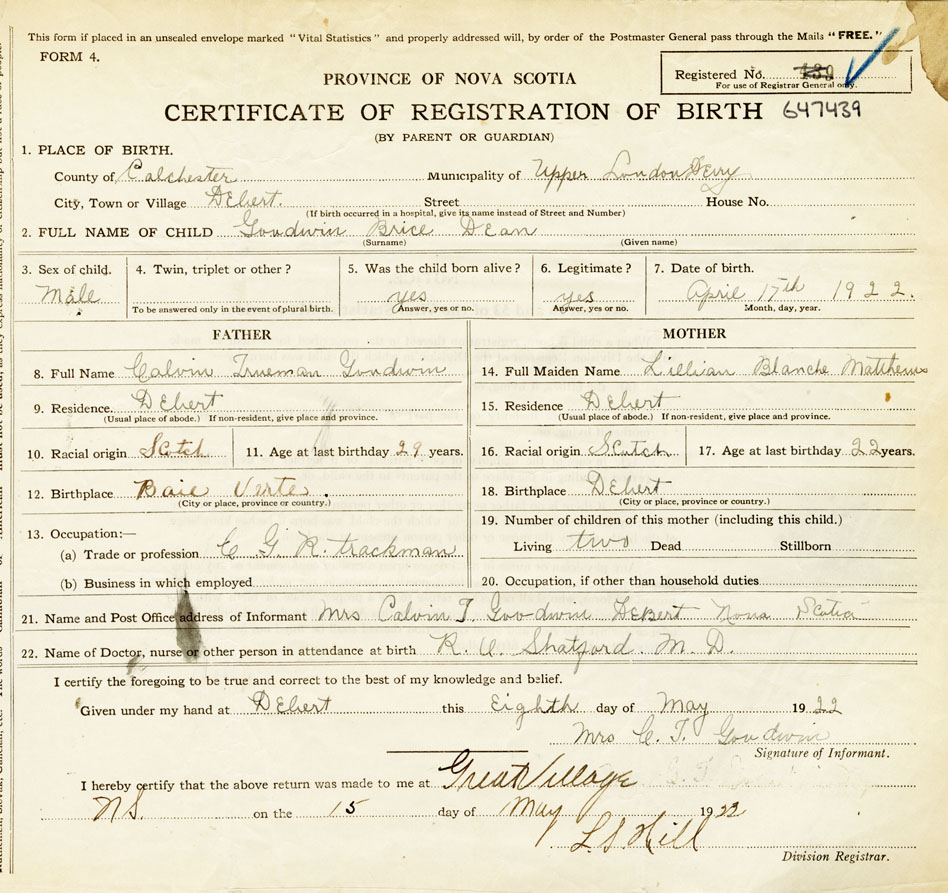 This form if placed in an unsealed envelope marked "Vital Statistics" and properly addressed will, by order of the Postmaster General pass through the Mails "FREE."
FORM 4.
Registered No.
For use of Registrar General only.
PROVINCE OF NOVA SCOTIA
CERTIFICATE OF REGISTRATION OF BIRTH 647439
(BY PARENT OR GUARDIAN)
1. PLACE OF BIRTH.
County of Colchester Municipality of Upper LondonDerry
City, Town or Village DEbert. Street House No.
(If birth occurred in a hospital, give its name instead of Street and Number)
2. FULL NAME OF CHILD Goodwin Brice Dean
(Surname) (Given name)
3. Sex of child. 4. Twin, triplet or other? 5. Was the child born alive? 6. Legitimate? 7. Date of birth.
Male yes yes April 17th 1922.
To be answered only in the event of plural birth. Answer, yes or no. Answer, yes or no. Month, day, year.
FATHER MOTHER
8. Full Name Calvin Trueman Goodwin 14. Full Maiden Name Lillian Blanche Matthews
9. Residence. DEbert 15. Residence DEbert
(Usual place of abode.) If non-resident, give place and province. (Usual place of abode.) If non-resident, give place and province.
10. Racial origin Scotch 11. Age at last birthday 29 years. 16. Racial origin Scotch 17. Age at last birthday 22 years.
12. Birthplace Baie Verte. 18. Birthplace DEbert
(City or place, province or country.) (City or place, province or country.)
13. Occupation:— 19. Number of children of this mother (including this child.)
(a) Trade or profession C G R trackman Living two Dead Stillborn
(b) Business in which employed 20. Occupation, if other than household duties
21. Name and Post Office address of Informant Mrs Calvin T. Goodwin DEBert Nova Scotia
22. Name of Doctor, nurse or other person in attendance at birth R. U. Shatford. M. D.
I certify the foregoing to be true and correct to the best of my knowledge and belief.
Given under my hand at DEbert this Eighth day of May 1922
Mrs C. T. Goodwin
Signature of Informant.
I hereby certify that the above return was made to me at Great Village
NS. on the 15 day of May 1922
L.S. Hill
Division Registrar.